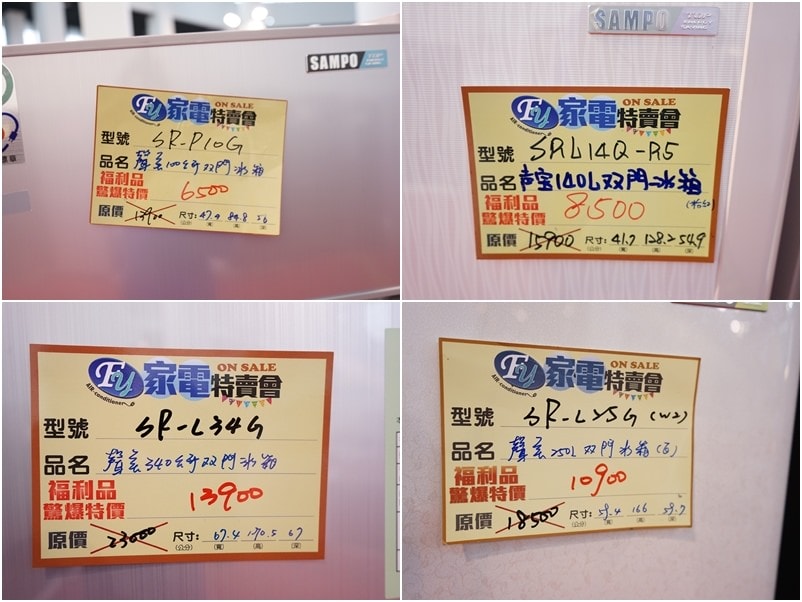 SAMPO
FY 家電特賣會
ON SALE
AIR-conditioner
型號 SR-P10G
品名 聲宝100公升双門冰箱
福利品
驚爆特價 6500
原價
尺寸: 47.4 84.8
(公分) (寬) (高) (深)
SAMPO
FY 家電特賣會
ON SALE
AIR-conditioner
型號 SRL14Q-R5
品名 声宝140L双門冰箱
福利品
驚爆特價 8500
原價 15900 尺寸: 41.7 128.2 54.9
(公分) (寬) (高) (深)
FY 家電特賣會
ON SALE
AIR-conditioner
型號 SR-L34G
品名 聲宝340公升双門冰箱
福利品
驚爆特價 13900
原價 23000 尺寸: 67.4 170.5 67
(公分) (寬) (高) (深)
FY 家電特賣會
ON SALE
AIR-conditioner
型號 SR-L25G (W2)
品名 聲宝250L双門冰箱(白)
福利品
驚爆特價 10900
原價 18500 尺寸: 59.4 166 59.7
(公分) (寬) (高) (深)